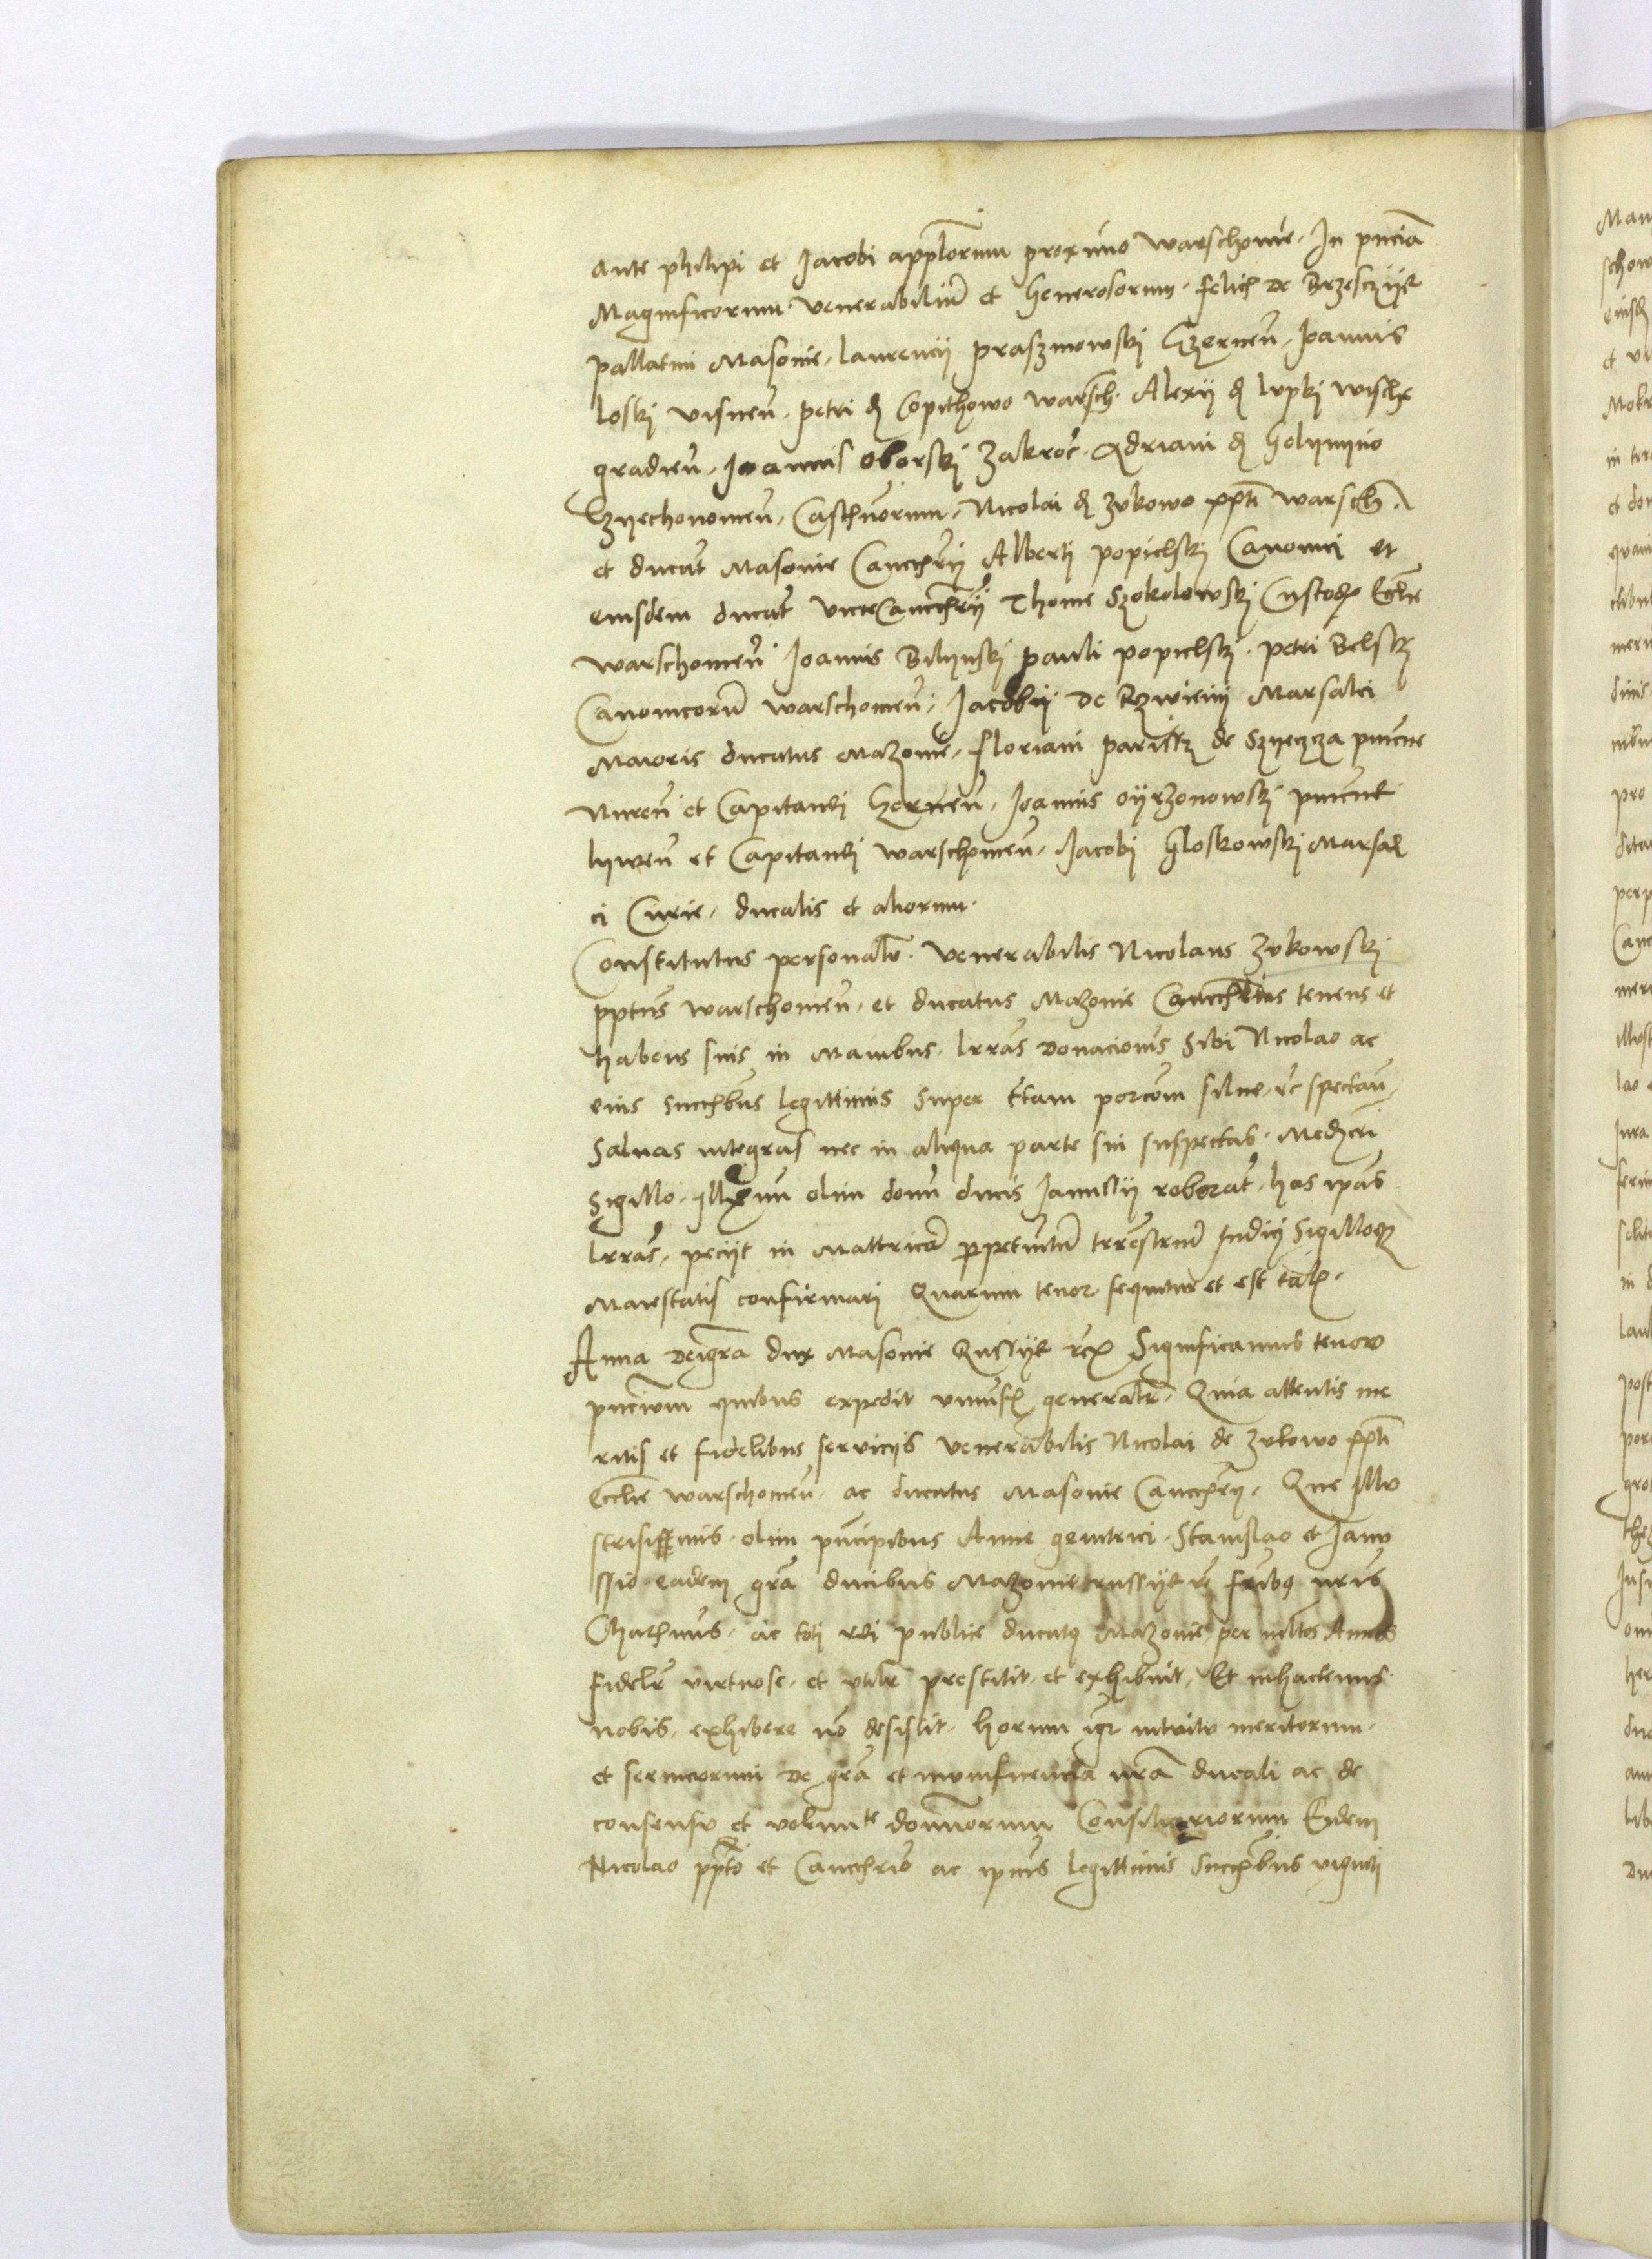 ante philipi et Jacobi applorum proximo Warschovie. In pncia
Magnificorum Venerabiliu et Generosorum. Felicis de Brzesczije
pallatini Masovie, laurencij prasznowskj Czernen, Joannis
loskj visnen. petri de Copithowo Warsch. Alexij de lupkj wische
gradien, Joannis Oborskj Zakroc. Adriani de Golijmijno
Czyechonomen, Castlnorum, Nicolai de Zukowo ppti Warsch.
et ducat Masovie Cancrij Albertj popielskj Canonici et
eiusdem ducat viceCancrij Thome Szokolowskj Custodis Eccle
warschomen Joannis Bilijnskj pauli popielskj. petri Belskj
Canonicoru warschomen, Jacobij de Rzwienij Marsalci
Maioris ducatus Mazovie, Floriani parissz de Szijeczcza pincne
Nuren et Capitanej Gernen, Joannis oijrzonowskj pincne
lijwen et Capitanej warschomen, Jacobi Gloskowskj Marsal
ci Curie, ducalis et aliorum.
Constitutus personalr. Venerabilis Nicolaus Zukowskj
pptus warschomen, et ducatus Mazovie Cancrius tenens et
habens suis in Manibus. lrras donacionis Sibi Nicolao ac
eius succbus legittimis Super Ctam porcom silue, rc spectan,
Saluas integras nec in aliqua parte sui suspectas. Medxcri
Sigillo. Illmum olim domi ducis Janussij roborat, has ipas
lrras, peciit in Mattrica ppetuitu trrestrium Judicij Sigilloq
Maiestatis confirmarj Quarum tenor sequitur et est talis.
Anna deigra dux Masovie Russije rex Significamus tenore
pncium quibus expedit vniursis generalr, Quia attentis me
ritis et fidelibus seruicijs venerabilis Nicolai de Zukowo ppti
Ecclie warschomen, ac ducatus Masovie Cancrij, Que Illu
strisissimis. olim pncipibus Anne genitrici. Stanislao et Janu
ssio. eadem gra ducibus Mazovie russije rc fribus nris
Charimis, ac toti rei publice ducatus Mazovie, per multos Annos
fidelr virtuose, et vtilr prestitit, et exhibuit, Et inhactenus
nobis, exhibere no desistit, horum igr intuitu meritorum.
et seruicorum de gra et munificencia nra ducali ac de
consensu et voluntte dominorum Consiliariorum Eidem
Nicolao ppto et Cancrio ac ipius legittimis Succbus viginti